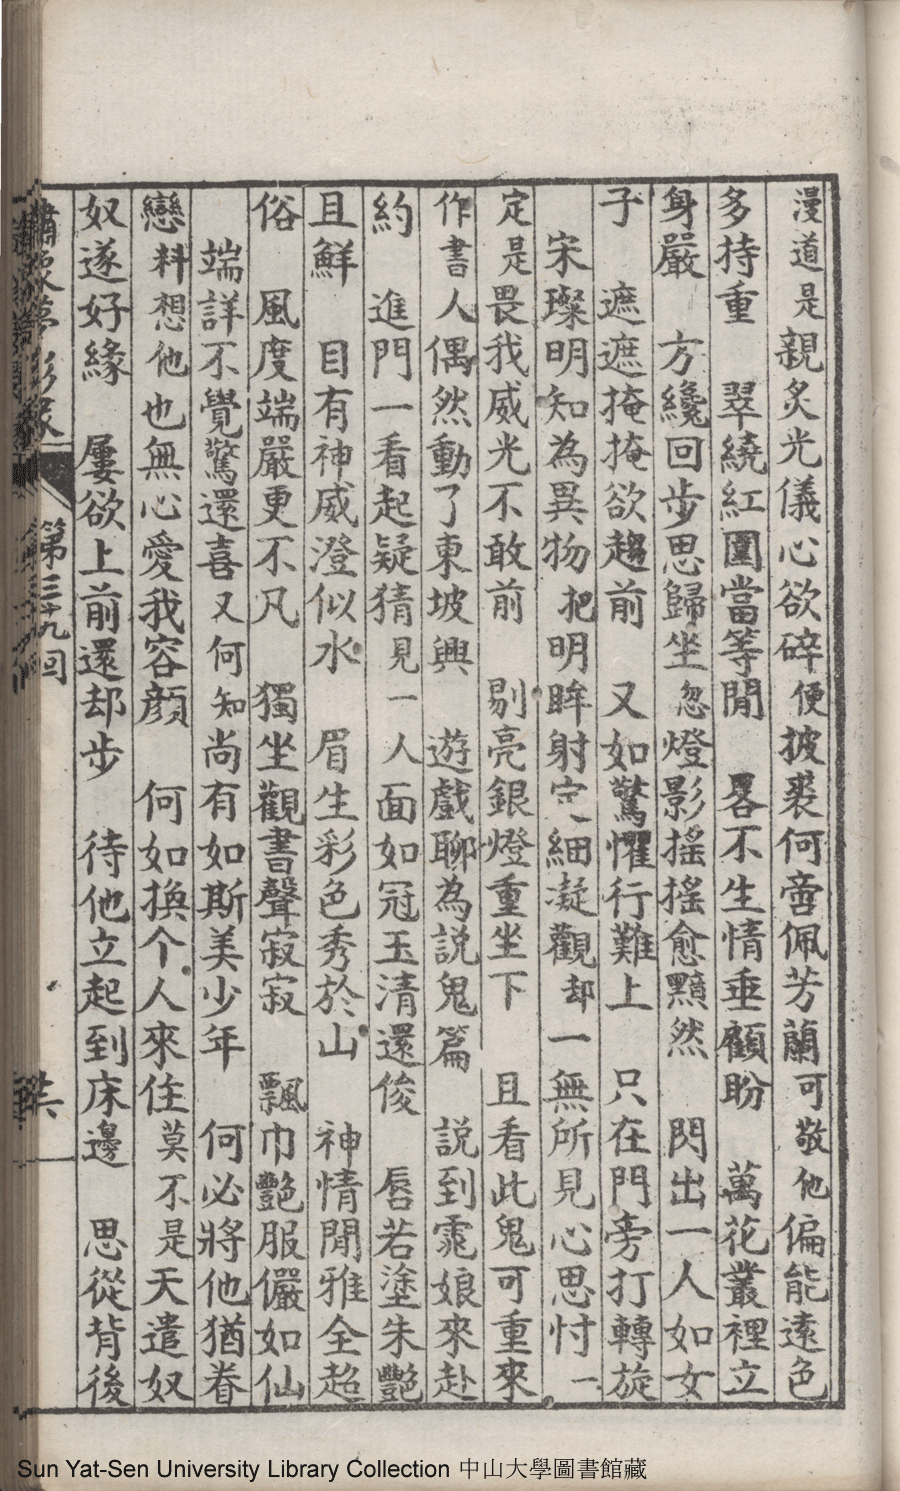 漫道是親炙光儀心欲碎便披裘何啻佩芳蘭可敬他偏能遠色
多持重　翠繞紅圍當等閒　畧不生情垂顧盼　萬花叢裡立
身嚴　方纔回步思歸坐忽燈影搖搖愈黯然　閃出一人如女
子　遮遮掩掩欲趨前　又如驚懼行難上　只在門旁打轉旋
宋璨明知為異物把明眸射定細凝觀却一無所見心思忖一
定是畏我威光不敢前　剔亮銀燈重坐下　且看此鬼可重來
作書人偶然動了東坡興　遊戲聊為說鬼篇　說到霓娘來赴
約　進門一看起疑猜見一人面如冠玉清還俊　唇若塗朱艷
且鮮　目有神威澄似水　眉生彩色秀於山　神情閒雅全超
俗　風度端嚴更不凡　獨坐觀書聲寂寂　飄巾艷服儼如仙
端詳不覺驚還喜又何知尚有如斯美少年　何必將他猶眷
戀料想他也無心愛我容顏　何如換个人來住莫不是天遣奴
奴遂好緣　屢欲上前還却步　待他立起到床邊　思從背後
第三十九回
Sun Yat-Sen University Library Collection 中山大學圖書館藏